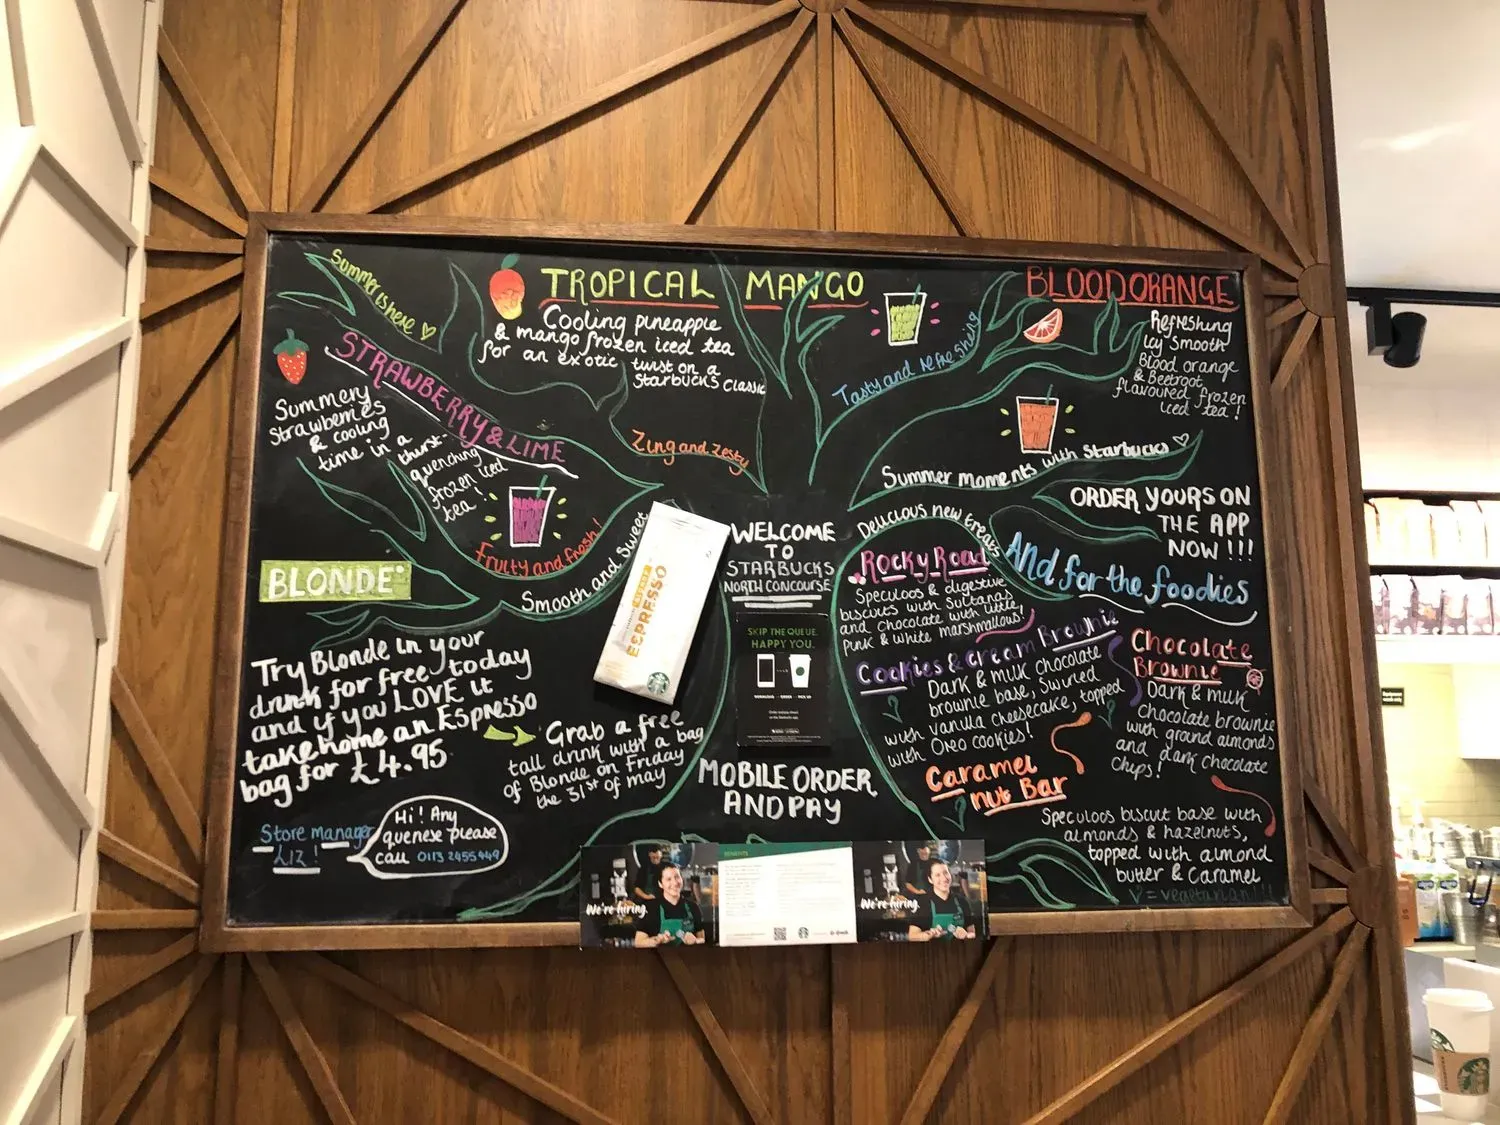 Summer is here
TROPICAL MANGO
Cooling pineapple
& mango frozen iced tea
for an exotic twist on a
Starbucks Classic
BLOOD ORANGE
Refreshing
icy smooth
Blood orange
& Beetroot
flavoured frozen
iced tea!
STRAWBERRY & LIME
Summery
Strawberries
& cooling
time in a
thirst-
quenching
frozen iced
tea!
Zing and zesty
Tasty and refreshing
Fruity and fresh!
Smooth and sweet
Summer moments with Starbucks
Delicious new treats
ORDER YOURS ON
THE APP
NOW !!!
WELCOME
TO
STARBUCKS
NORTH CONCOURSE
SKIP THE QUEUE.
HAPPY YOU.
DOWNLOAD ORDER PICK UP
MOBILE ORDER
AND PAY
ESPRESSO
BLONDE
Try Blonde in your
drink for free today
and if you LOVE it
take home an Espresso
bag for £4.95
Grab a free
tall drink with a bag
of Blonde on Friday
the 31st of may
Store manager
Liz!
Hi! Any
quenese please
call 0113 2455449
And for the foodies
Rocky Road
Speculoos & digestive
biscuits with Sultanas
and chocolate with little
pink & white marshmallows!
Cookies & Cream Brownie
Dark & milk chocolate
brownie base, swirled
with vanilla cheesecake, topped
with Oreo cookies!
Chocolate
Brownie
Dark & milk
Chocolate brownie
with ground almonds
and dark chocolate
chips!
Caramel
nut Bar
Speculoos biscuit base with
almonds & hazelnuts,
topped with almond
butter & caramel
V = vegetarian!!!
We're hiring.
BENEFITS
We're hiring.